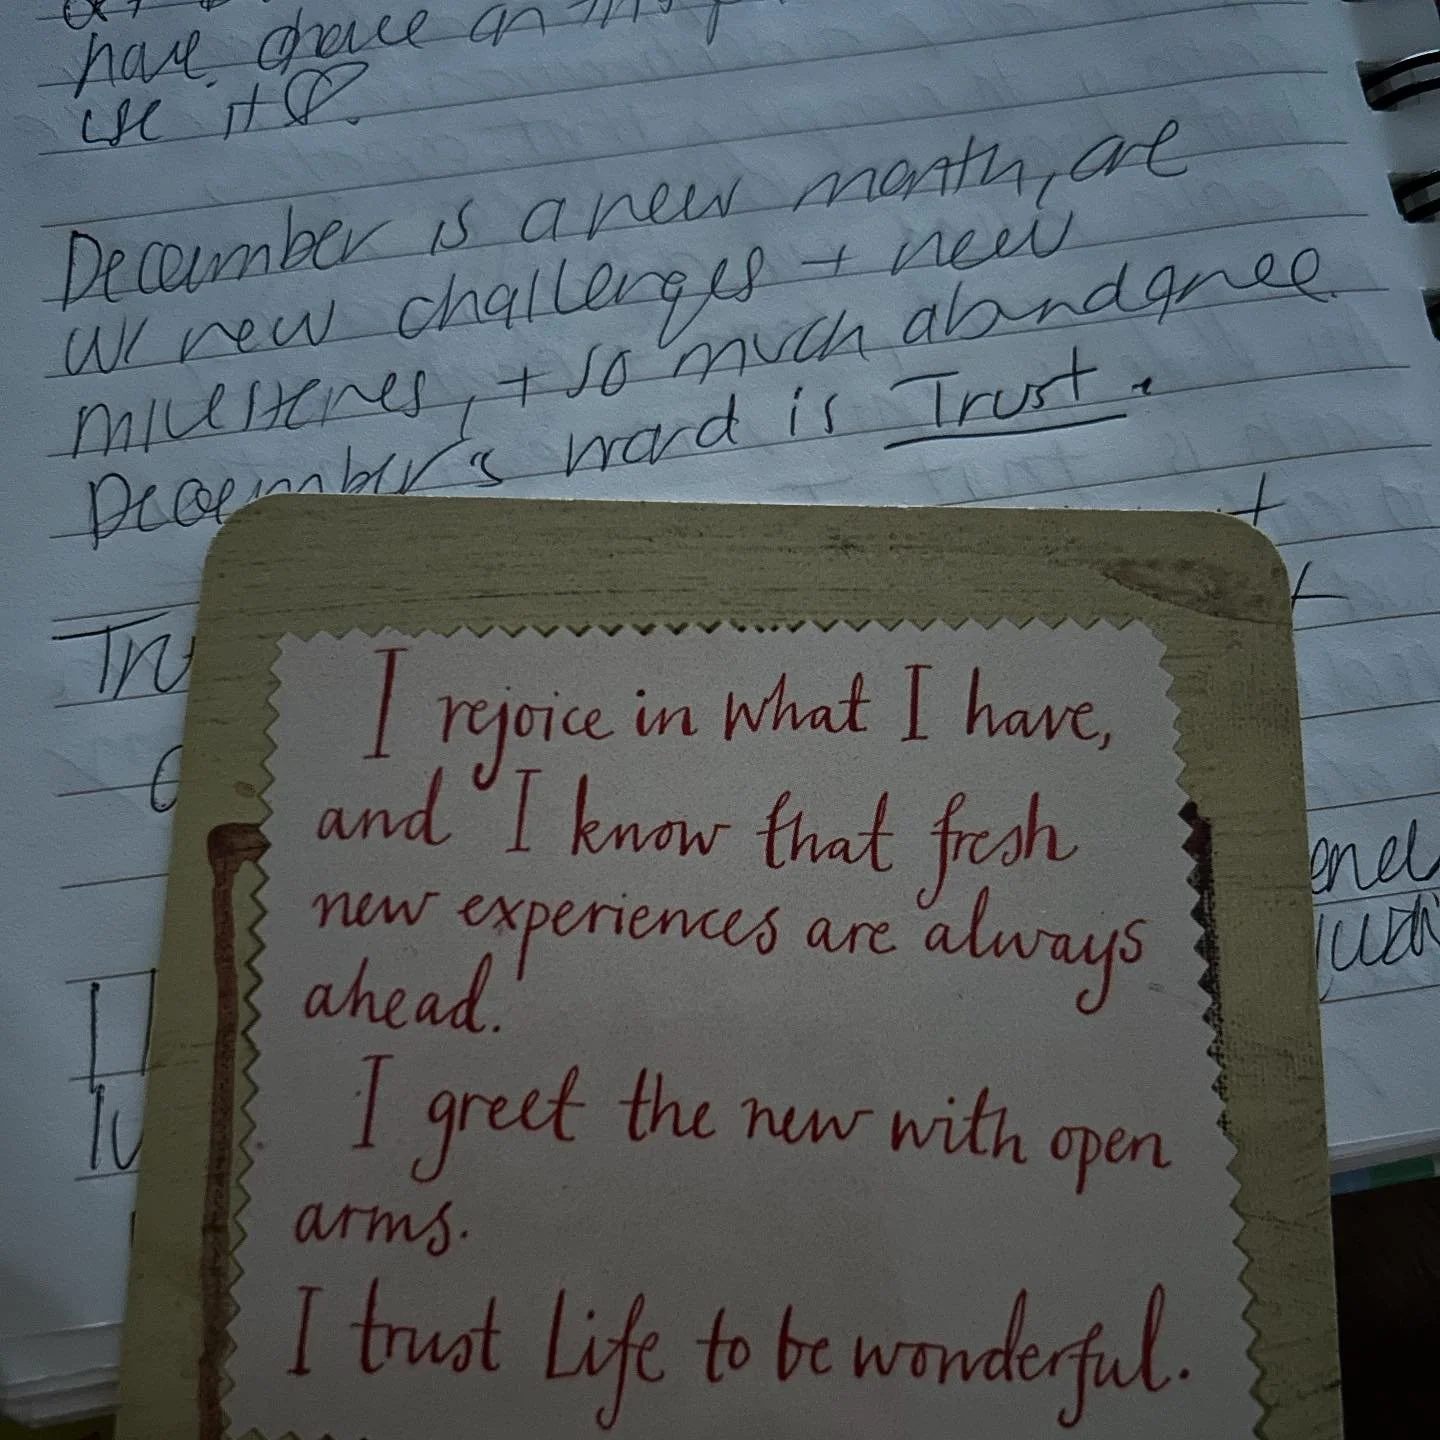 have
use it ♡.
December is a new month, are
w/ new challenges + new
milestones, + so much abundance.
December's word is Trust.
Tru
I rejoice in what I have,
and I know that fresh
new experiences are always
ahead.
I greet the new with open
arms.
I trust Life to be wonderful.